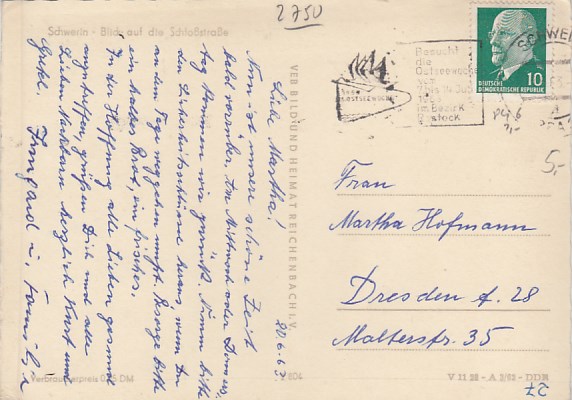 2750
Schwerin - Blick auf die Schloßstraße
Liebe Martha!
20.6.63
Nun ist unsere schöne Zeit
bald vorüber. Am Mittwoch oder Donners-
tag kommen wir zurück. Nimm bitte
den Sicherheitsschlüssel heraus, wenn Du
an dem Tage weggehen mußt. Besorge bitte
ein halbes Brot, ein frisches.
In der Hoffnung alle Lieben gesund
anzutreffen, grüßen Dich und alle
lieben Nachbarn herzlich Kurt und
Gretel. Irmgard u. Familie
Verbraucherpreis DM
VEB BILD UND HEIMAT REICHENBACH I. V.
Besucht
die
Ostseewoche
im Bezirk
Rostock
OSTSEEWOCHE
DEUTSCHE
DEMOKRATISCHE REPUBLIK
10
SCHWE
5,-
Frau
Martha Hofmann
Dresden A. 28
Malterstr. 35
804
V 11 28 - A 2/63 - DDR
27